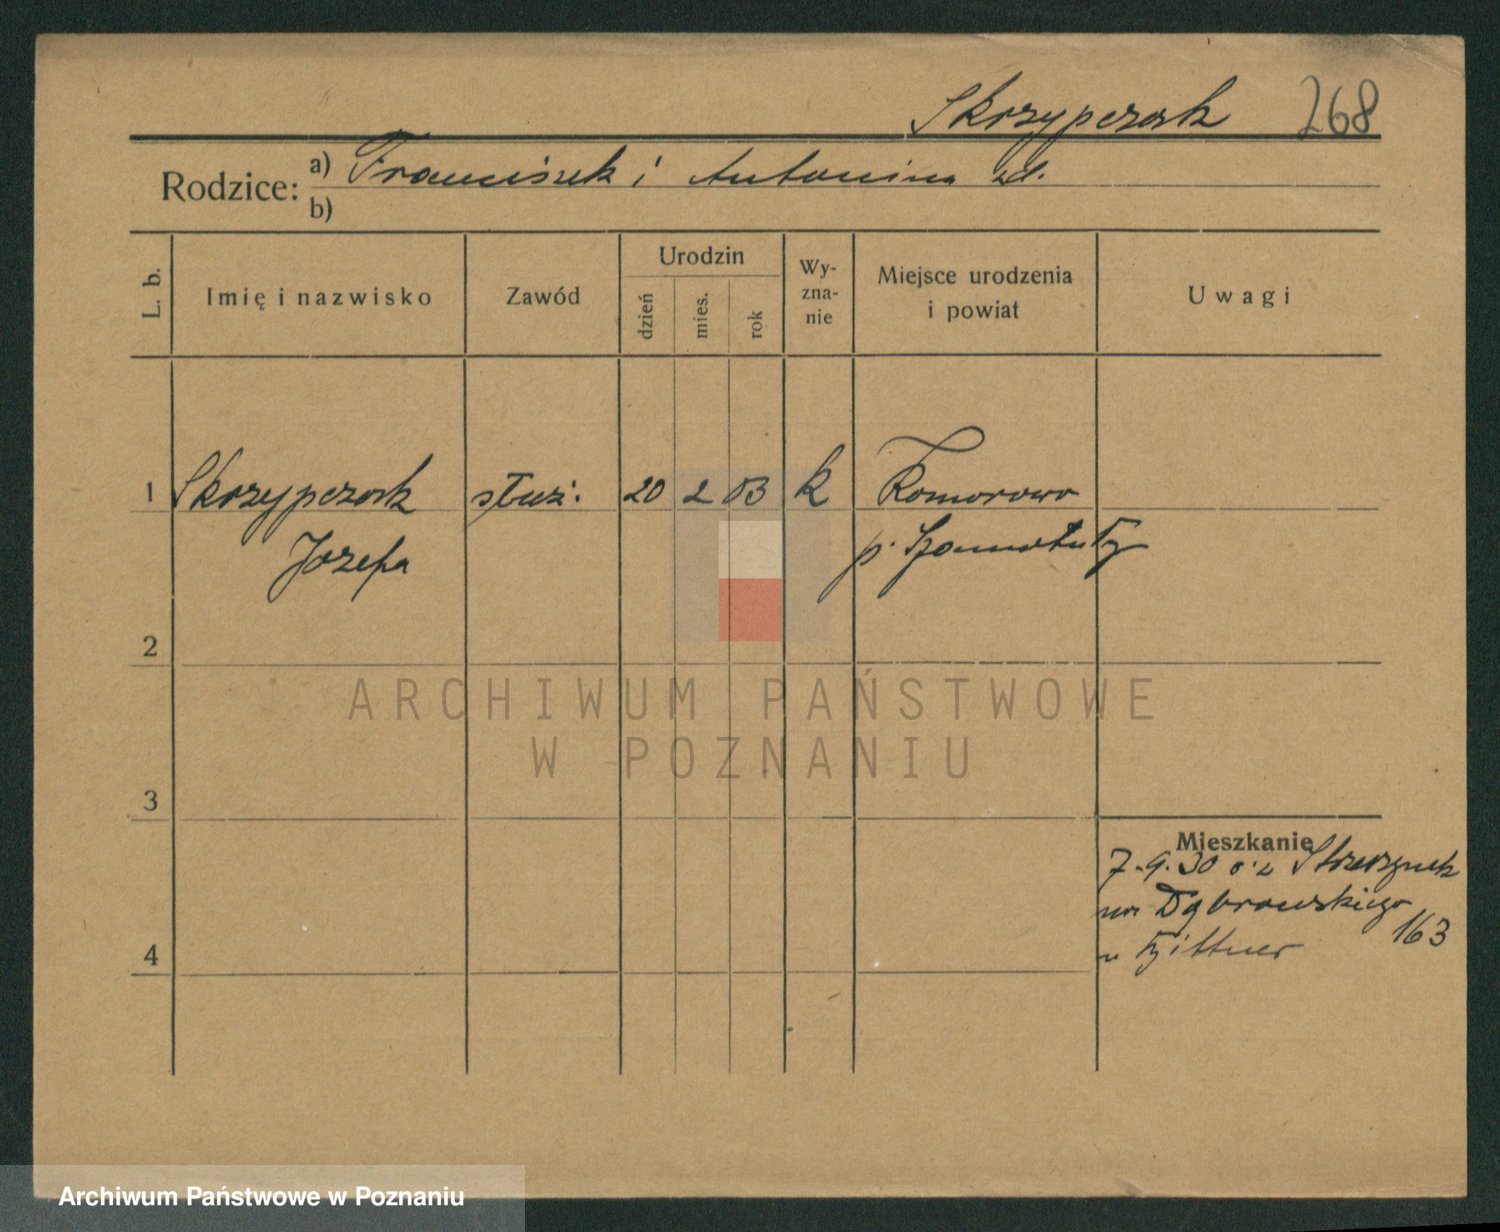 Skrzypczak 268
Rodzice: a) Franciszek i Antonina
b)
L. b. Imię i nazwisko Zawód Urodzin dzień mies. rok Wy-zna-nie Miejsce urodzenia i powiat Uwagi
1 Skrzypczak służ. 20 2 03 k Komorowo
Józefa p. Szamotuły
2
3
4
Mieszkanie
7.9.30 Strzeszynek
na Dąbrowskiego 163
u Bittner
ARCHIWUM PAŃSTWOWE
W POZNANIU
Archiwum Państwowe w Poznaniu